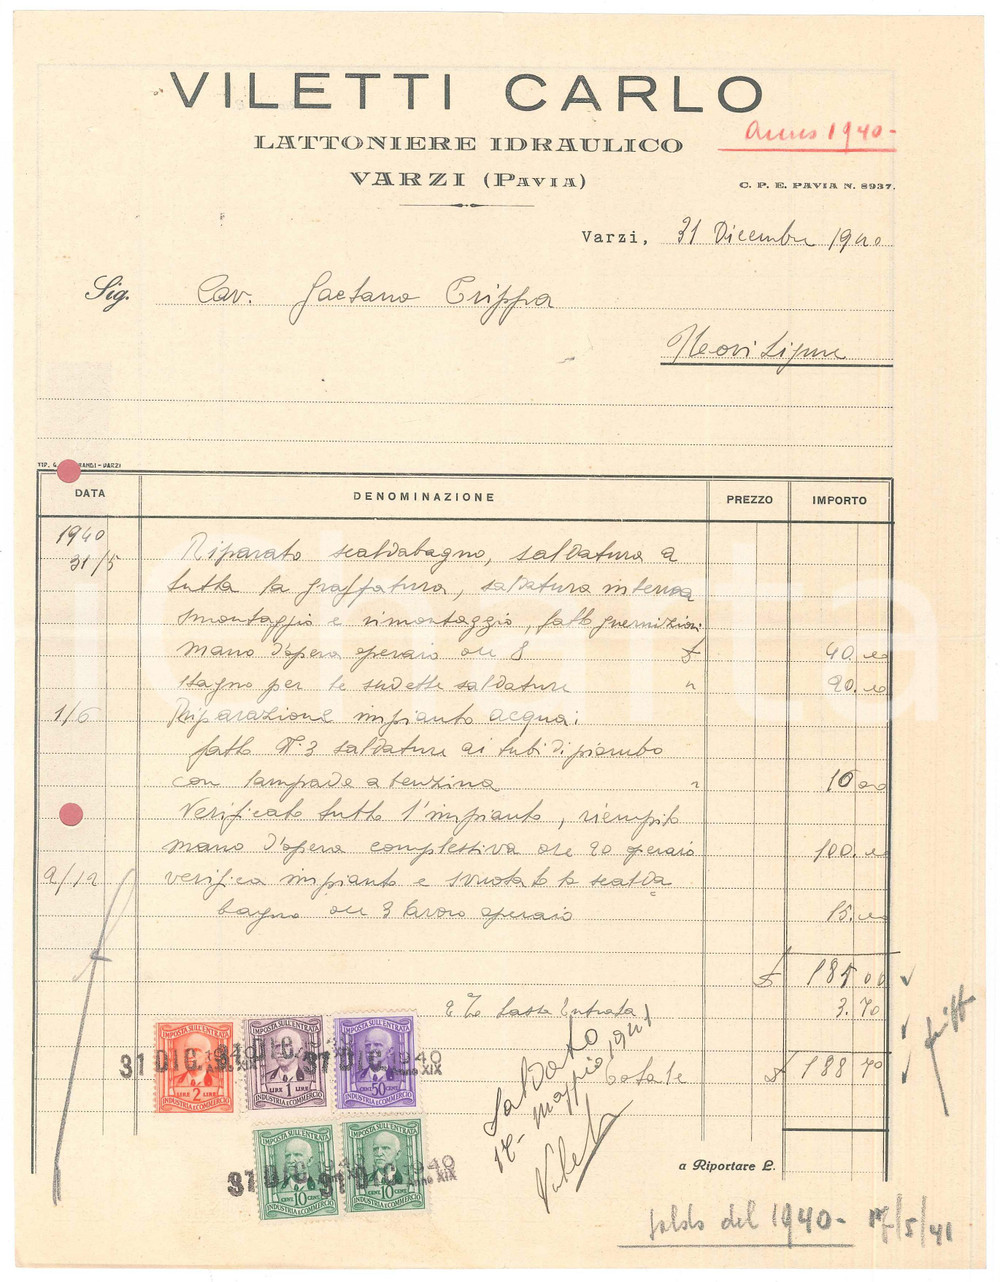 VILETTI CARLO
LATTONIERE IDRAULICO
Anno 1940-
VARZI (PAVIA)
C. P. E. PAVIA N. 8937.
Varzi, 31 Dicembre 1940
Sig. Cav. Gaetano Crippa
Novi Ligure
DATA DENOMINAZIONE PREZZO IMPORTO
1940
31/5 Riparato scaldabagno, saldatura a
tutta la graffatura, saldatura interna
smontaggio e rimontaggio, fatto guernizioni
mano d'opera operaio ore 8 £ 40.00
stagno per le sudette saldature " 20.00
1/6 Riparazione impianto acqua:
fatto N. 3 saldature ai tubi di piombo
con lampada a benzina " 10 00
Verificato tutto l'impianto, riempito
mano d'opera complessiva ore 20 operaio 100.00
2/12 verifica impianto e svuotato lo scalda
bagno ore 3 lavoro operaio 15.00
£ 185 00
2 % tassa Entrata 3.70
Totale £ 188 70
IMPOSTA SULL'ENTRATA IMPOSTA SULL'ENTRATA IMPOSTA SULL'ENTRATA
31 DIC. 1940 31 DIC. 31 DIC. 1940
Anno XIX
LIRE 2 LIRE LIRE 1 LIRE CENT. 50 CENT.
INDUSTRIA E COMMERCIO INDUSTRIA E COMMERCIO INDUSTRIA E COMMERCIO
IMPOSTA SULL'ENTRATA IMPOSTA SULL'ENTRATA
31 DIC. 1940 31 DIC. 1940
Anno XIX
CENT. 10 CENT. CENT. 10 CENT.
INDUSTRIA E COMMERCIO INDUSTRIA E COMMERCIO
Saldato
17- maggio 1941
a Riportare L.
saldo del 1940- 17/5/41
iCharta